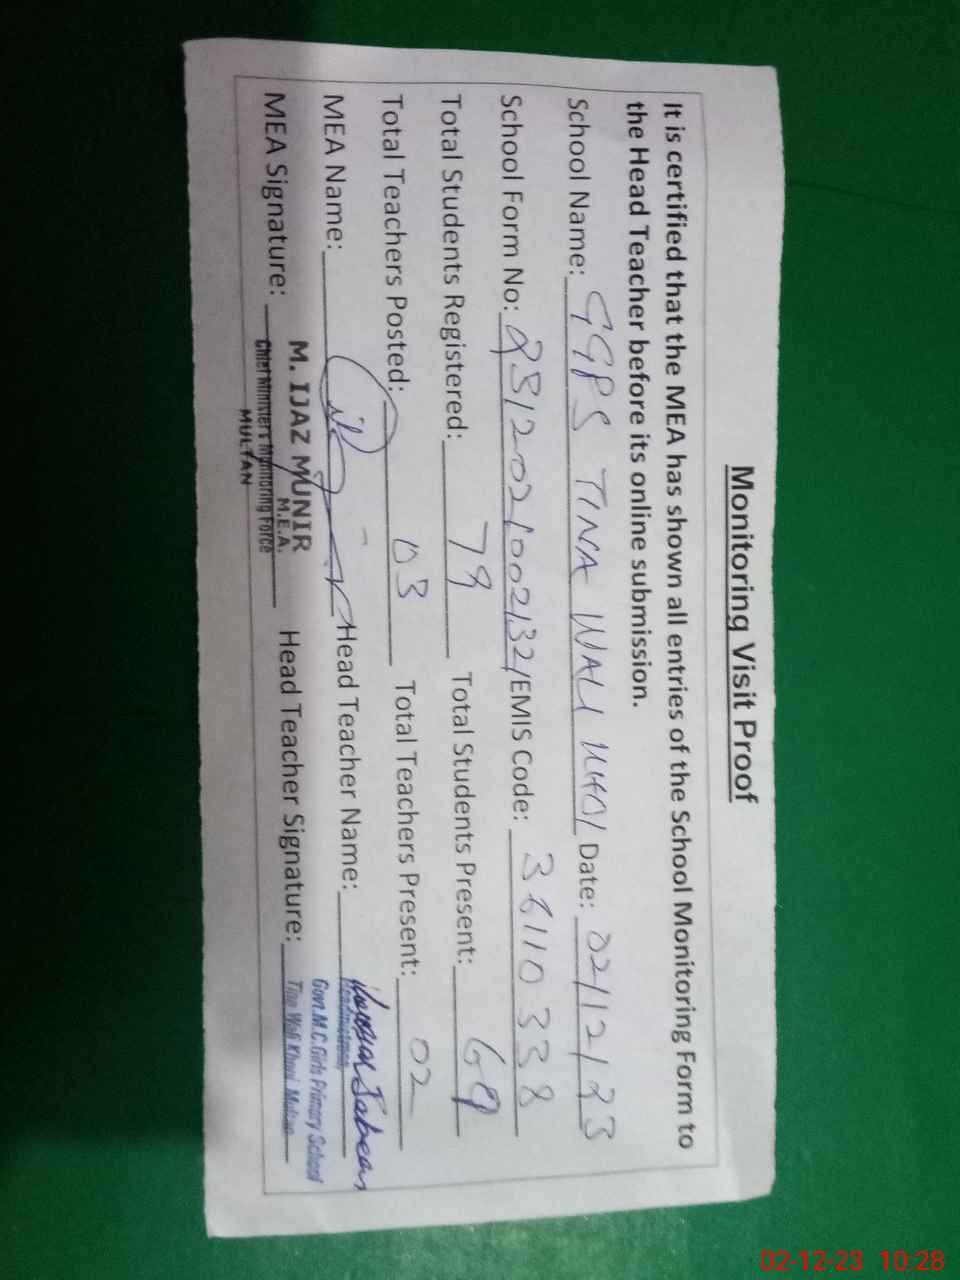 Monitoring Visit Proof
It is certified that the MEA has shown all entries of the School Monitoring Form to
the Head Teacher before its online submission.
School Name: GGPS TINA WALI KHOI Date: 02/12/23
School Form No: 2312021002132 /EMIS Code: 36110338
Total Students Registered: 79 Total Students Present: 69
Total Teachers Posted: 03 Total Teachers Present: 02
MEA Name: Head Teacher Name:
MEA Signature: Head Teacher Signature:
M. IJAZ MUNIR
M.E.A.
Chief Minister's Monitoring Force
MULTAN
Headmistress
Govt. M.C. Girls Primary School
Tina Wali Khoui Multan
02-12-23 10:28